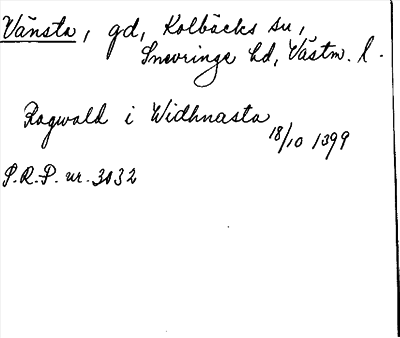 Vänsta, gd, Kolbäcks sn,
Snevringe hd, Västm. l.
Ragwald i Widhnasta
18/10 1399
P.R.P. nr. 3032